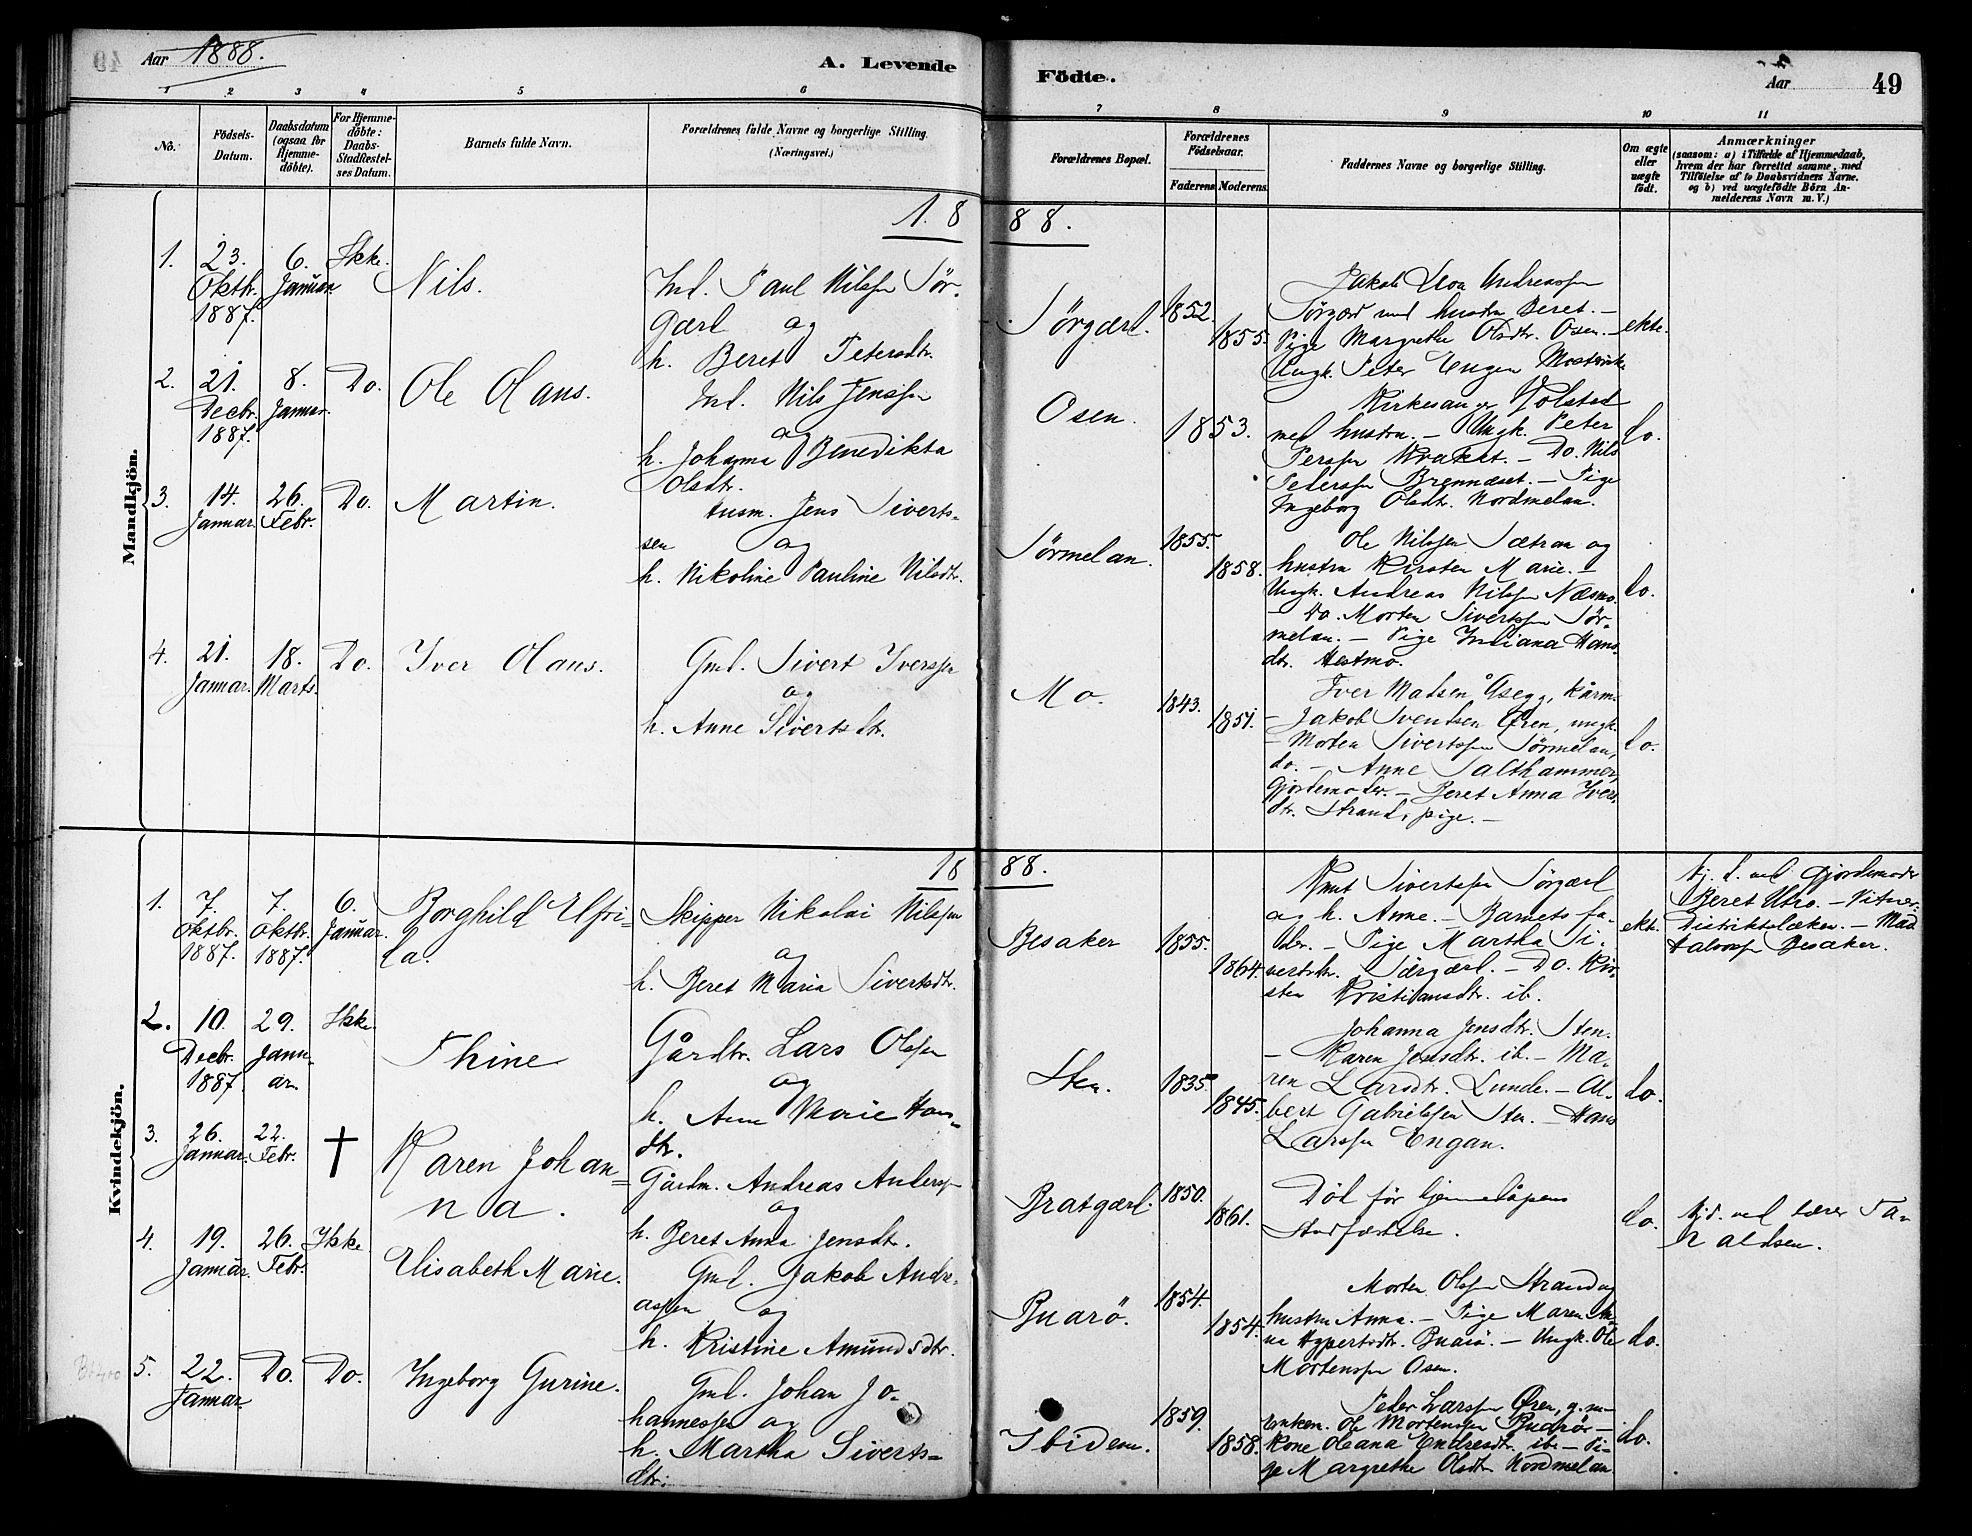 Aar 1888.
A. Levende
Födte.
Aar
49
1 2 3 4 5 6 7 8 9 10 11
No.
Födsels-
Datum.
Daabsdatum
(ogsaa for
Hjemme-
döbte).
For Hjemme-
döbte:
Daabs-
Stadfæstel-
ses Datum.
Barnets fulde Navn.
Forældrenes fulde Navne og borgerlige Stilling.
(Næringsvei.)
Forældrenes Bopæl.
Forældrenes
Födselsaar.
Faderens. Moderens.
Faddernes Navne og borgerlige Stilling.
Om ægte
eller
uægte
födt.
Anmærkninger
(saasom: a) i Tilfælde af Hjemmedaab,
hvem der har forrettet samme, med
Tilföielse af to Daabsvidners Navne.
og b) ved uægtefödte Börn An-
melderens Navn m. V.)
Mandkjön.
18
88.
1.
23.
Oktbr.
1887.
6.
Januar.
Ikke.
Nils.
Ind. Paul Nilssen Sör-
gærd og
h. Beret Petersdtr.
Sörgærd.
1852.
1855.
Jakob Andreassen
Sörgærd med hustru Beret. –
Pige Margrethe Olsdtr. Osen. –
Ungk. Peter Engen
ekte.
2.
21.
Decbr.
1887.
8.
Januar.
Do.
Ole Olaus.
Ind. Nils Jenssen
og
h. Johanna Benedikta
Olsdtr.
Osen.
1853.
Kirkesanger Holstad
med hustru. – Ungk. Peter
Perssen – Do. Nils
Pederssen Brennæset. – Pige
Ingeborg Olsdtr. Nordmelan.
do.
3.
14.
Januar.
26.
Febr.
Do.
Martin.
Husm. Jens Siverts-
sen og
h. Nikoline Pauline Nilsdtr.
Sörmelan.
1855.
1858.
Ole Nilssen Sætran og
hustru Kirsten Marie. –
Ungk. Andreas Nilssen Næsmo.
– Do. Morten Sivertssen Sör-
melan. – Pige Juliana Hans-
dtr. Hestmo.
do.
4.
21.
Januar.
18.
Marts.
Do.
Iver Olaus.
Gmd. Sivert Iverssen
og
h. Anne Sivertsdtr.
Mo.
1843.
1851.
Iver Madsen Åsegg, kårm.
– Jakob Svendsen Øren, ungk.
– Morten Sivertssen Sörmelan,
do. – Anne Salthammer,
Gjordemoder. – Beret Anna Ivers-
dtr. Strand, pige. –
do.
Kvindekjön.
18
88.
1.
7.
Oktbr.
1887.
7.
Oktbr.
1887.
6.
Januar.
Borghild Elfri-
da.
Skipper Nikolai Nilssen
og
h. Beret Maria Sivertsdtr.
Besaker
1855.
1864.
Knut Sivertssen Sörgærd
og h. Anne. – Barnets fa-
der. – Pige Martha Si-
vertsdtr. Sörgærd. – Do. Kir-
sten Kristiansdtr. ib.
ekt.
Hj. d. ved Gjordemoder
Beret Utro. – Vitner:
Distriktslæken. – Mad
Halvorsen Besaker.
2.
10.
Decbr.
1887.
29.
Janu-
ar.
Ikke
Thine
Gårdbr. Lars Olssen
og
h. Ane Marie Hans-
dtr.
Sten.
1835.
1845.
Johanna Jensdtr. Sten.
– Karen Jensdtr. ib. – Ma-
ren Larsdtr. Lunde. – Al-
bert Gabrielssen Sten. – Hans
Larssen Engan.
do.
3.
26.
Januar.
22.
Febr.
†
Karen Johan-
na.
Gårdm. Andreas Anderssen
og
h. Beret Anna Jensdtr.
Bratgærd.
1850.
1861.
Död för hjemmedåpens
stadfæstelse.
do.
Hj. d. ved lærer Ta-
raldsen.
4.
19.
Januar.
26.
Febr.
Ikke
Elisabeth Marie.
Gmd. Jakob Andre-
assen og
h. Kristine Amundsdtr.
Buarö.
1854.
1854.
Morten Olssen Strand og
hustru Anna. – Pige Maren An-
na Hypertsdtr. Buarö. – Ungk. Ole
Mortenssen Osen.
do.
5.
22.
Januar
Do.
Do.
Ingeborg Gurine.
Gmd. Johan Jo-
hannessen og
h. Martha Siverts-
dtr.
Ibidem.
1859.
1858.
Peder Larssen Øren, g. m.
Ole Mortenssen Buarö –
Kone Oleana Endresdtr. ib. – Pi-
ge Margrethe Olsdtr. Nordmelan
do.